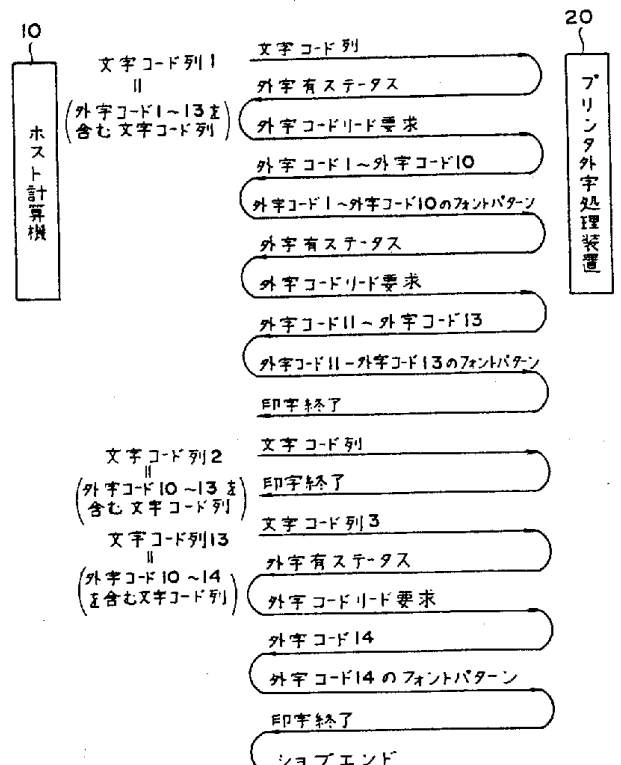 10
20
文字コード列1
〃
(外字コード1～13を
含む文字コード列)
ホスト計算機
プリンタ外字処理装置
文字コード列
外字有ステータス
外字コードリード要求
外字コード1～外字コード10
外字コード1～外字コード10のフォントパターン
外字有ステータス
外字コードリード要求
外字コード11～外字コード13
外字コード11－外字コード13のフォントパターン
印字終了
文字コード列2
〃
(外字コード10～13を
含む文字コード列)
文字コード列
印字終了
文字コード列13
〃
(外字コード10～14
を含む文字コード列)
文字コード列3
外字有ステータス
外字コードリード要求
外字コード14
外字コード14のフォントパターン
印字終了
ジョブエンド